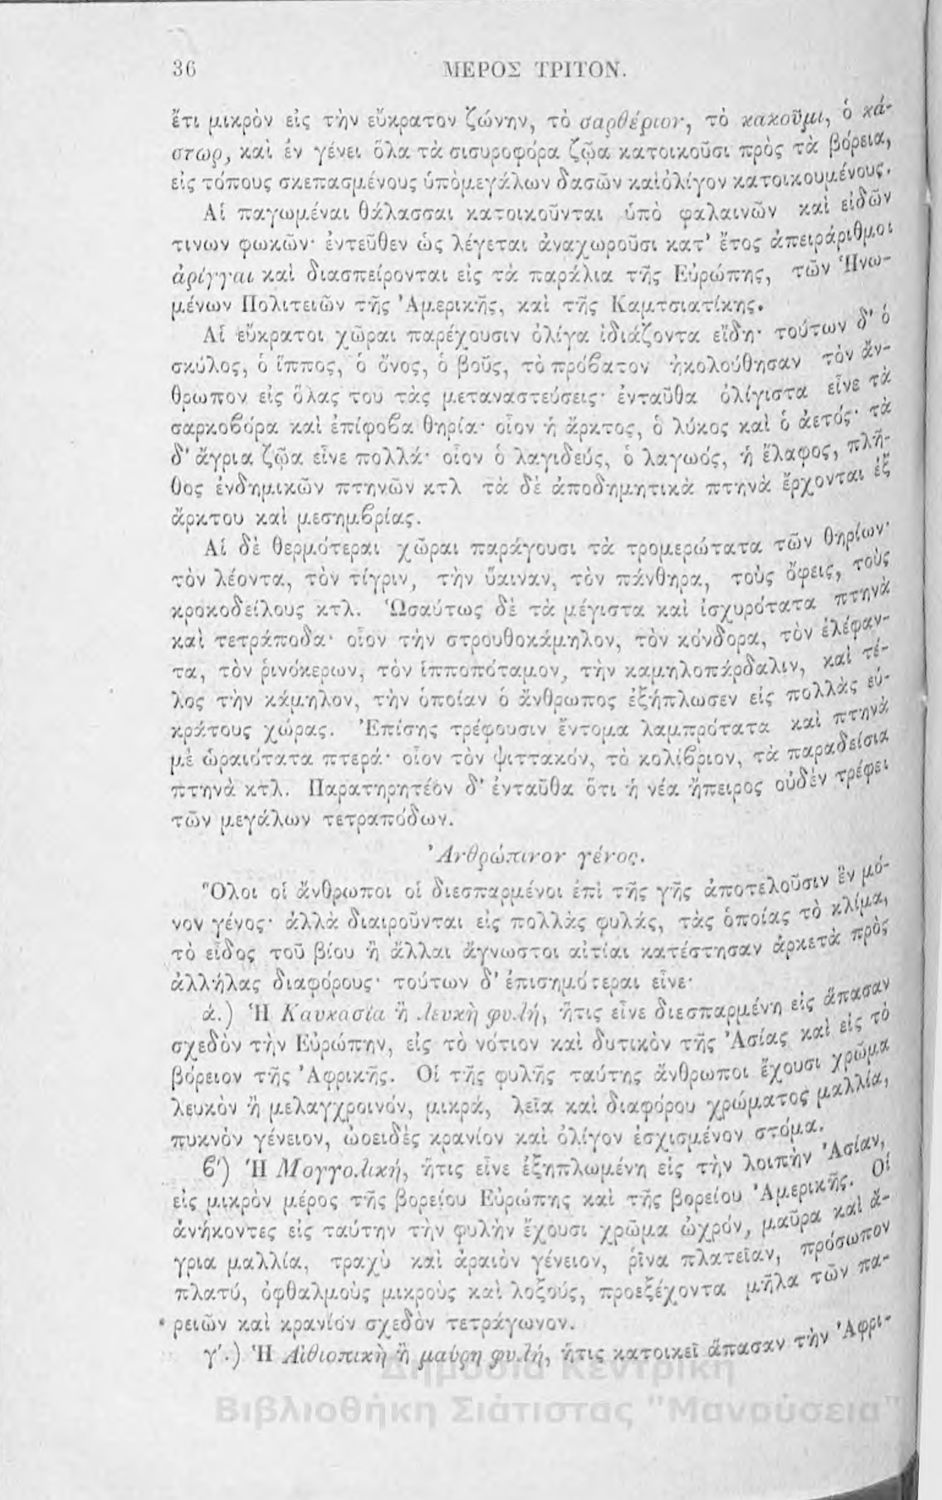 36 ΜΕΡΟΣ ΤΡΙΤΟΝ.
ἔτι μικρὸν εἰς τὴν εὔκρατον ζώνην, τὸ σαρθέριον, τὸ κακοῦμι, ὁ κά-
στωρ, καὶ ἐν γένει ὅλα τὰ σισυροφόρα ζῷα κατοικοῦσι πρὸς τὰ βόρεια,
εἰς τόπους σκεπασμένους ὑπὸμεγάλων δασῶν καὶὀλίγον κατοικουμένους.
Αἱ παγωμέναι θάλασσαι κατοικοῦνται ὑπὸ φαλαινῶν καὶ εἰδῶν
τινων φωκῶν· ἐντεῦθεν ὡς λέγεται ἀναχωροῦσι κατ' ἔτος ἀπειράριθμοι
ἀρίγγαι καὶ διασπείρονται εἰς τὰ παράλια τῆς Εὐρώπης, τῶν Ἡνω-
μένων Πολιτειῶν τῆς Ἀμερικῆς, καὶ τῆς Καμτσιατίκης.
Αἱ εὔκρατοι χῶραι παρέχουσιν ὀλίγα ἰδιάζοντα εἴδη· τούτων δ' ὁ
σκύλος, ὁ ἵππος, ὁ ὄνος, ὁ βοῦς, τὸ πρόβατον ἠκολούθησαν τὸν ἄν-
θρωπον εἰς ὅλας του τὰς μεταναστεύσεις· ἐνταῦθα ὀλίγιστα εἶνε τὰ
σαρκοβόρα καὶ ἐπίφοβα θηρία· οἷον ἡ ἄρκτος, ὁ λύκος καὶ ὁ ἀετός· τὰ
δ' ἄγρια ζῷα εἶνε πολλά· οἷον ὁ λαγιδεύς, ὁ λαγωός, ἡ ἔλαφος, πλῆ-
θος ἐνδημικῶν πτηνῶν κτλ τὰ δὲ ἀποδημητικὰ πτηνὰ ἔρχονται ἐξ
ἄρκτου καὶ μεσημβρίας.
Αἱ δὲ θερμότεραι χῶραι παράγουσι τὰ τρομερώτατα τῶν θηρίων·
τὸν λέοντα, τὸν τίγριν, τὴν ὕαιναν, τὸν πάνθηρα, τοὺς ὄφεις, τοὺς
κροκοδείλους κτλ. Ὡσαύτως δὲ τὰ μέγιστα καὶ ἰσχυρότατα πτηνὰ
καὶ τετράποδα· οἷον τὴν στρουθοκάμηλον, τὸν κόνδορα, τὸν ἐλέφαν-
τα, τὸν ῥινόκερων, τὸν ἱπποπόταμον, τὴν καμηλοπάρδαλιν, καὶ τέ-
λος τὴν κάμηλον, τὴν ὁποίαν ὁ ἄνθρωπος ἐξήπλωσεν εἰς πολλὰς εὐ-
κράτους χώρας. Ἐπίσης τρέφουσιν ἔντομα λαμπρότατα καὶ πτηνὰ
μὲ ὡραιότατα πτερά· οἷον τὸν ψιττακόν, τὸ κολίβριον, τὰ παραδείσια
πτηνὰ κτλ. Παρατηρητέον δ' ἐνταῦθα ὅτι ἡ νέα ἤπειρος οὐδὲν τρέφει
τῶν μεγάλων τετραπόδων.
Ἀνθρώπινον γένος.
Ὅλοι οἱ ἄνθρωποι οἱ διεσπαρμένοι ἐπὶ τῆς γῆς ἀποτελοῦσιν ἓν μό-
νον γένος· ἀλλὰ διαιροῦνται εἰς πολλὰς φυλάς, τὰς ὁποίας τὸ κλίμα,
τὸ εἶδος τοῦ βίου ἢ ἄλλαι ἄγνωστοι αἰτίαι κατέστησαν ἀρκετὰ πρὸς
ἀλλήλας διαφόρους· τούτων δ' ἐπισημότεραι εἶνε·
ά.) Ἡ Καυκασία ἢ λευκὴ φυλή, ἥτις εἶνε διεσπαρμένη εἰς ἅπασαν
σχεδὸν τὴν Εὐρώπην, εἰς τὸ νότιον καὶ δυτικὸν τῆς Ἀσίας καὶ εἰς τὸ
βόρειον τῆς Ἀφρικῆς. Οἱ τῆς φυλῆς ταύτης ἄνθρωποι ἔχουσι χρῶμα
λευκὸν ἢ μελαγχροινόν, μικρά, λεῖα καὶ διαφόρου χρώματος μαλλία,
πυκνὸν γένειον, ὠοειδὲς κρανίον καὶ ὀλίγον ἐσχισμένον στόμα.
β') Ἡ Μογγολική, ἥτις εἶνε ἐξηπλωμένη εἰς τὴν λοιπὴν Ἀσίαν,
εἰς μικρὸν μέρος τῆς βορείου Εὐρώπης καὶ τῆς βορείου Ἀμερικῆς. Οἱ
ἀνήκοντες εἰς ταύτην τὴν φυλὴν ἔχουσι χρῶμα ὠχρόν, μαῦρα καὶ ἄ-
γρια μαλλία, τραχὺ καὶ ἀραιὸν γένειον, ῥῖνα πλατεῖαν, πρόσωπον
πλατύ, ὀφθαλμοὺς μικροὺς καὶ λοξούς, προεξέχοντα μῆλα τῶν πα-
ρειῶν καὶ κρανίον σχεδὸν τετράγωνον.
γ'.) Ἡ Αἰθιοπικὴ ἢ μαύρη φυλή, ἥτις κατοικεῖ ἅπασαν τὴν Ἀφρι-
Δημόσια Κεντρική
Βιβλιοθήκη Σιάτιστας "Μανούσεια"